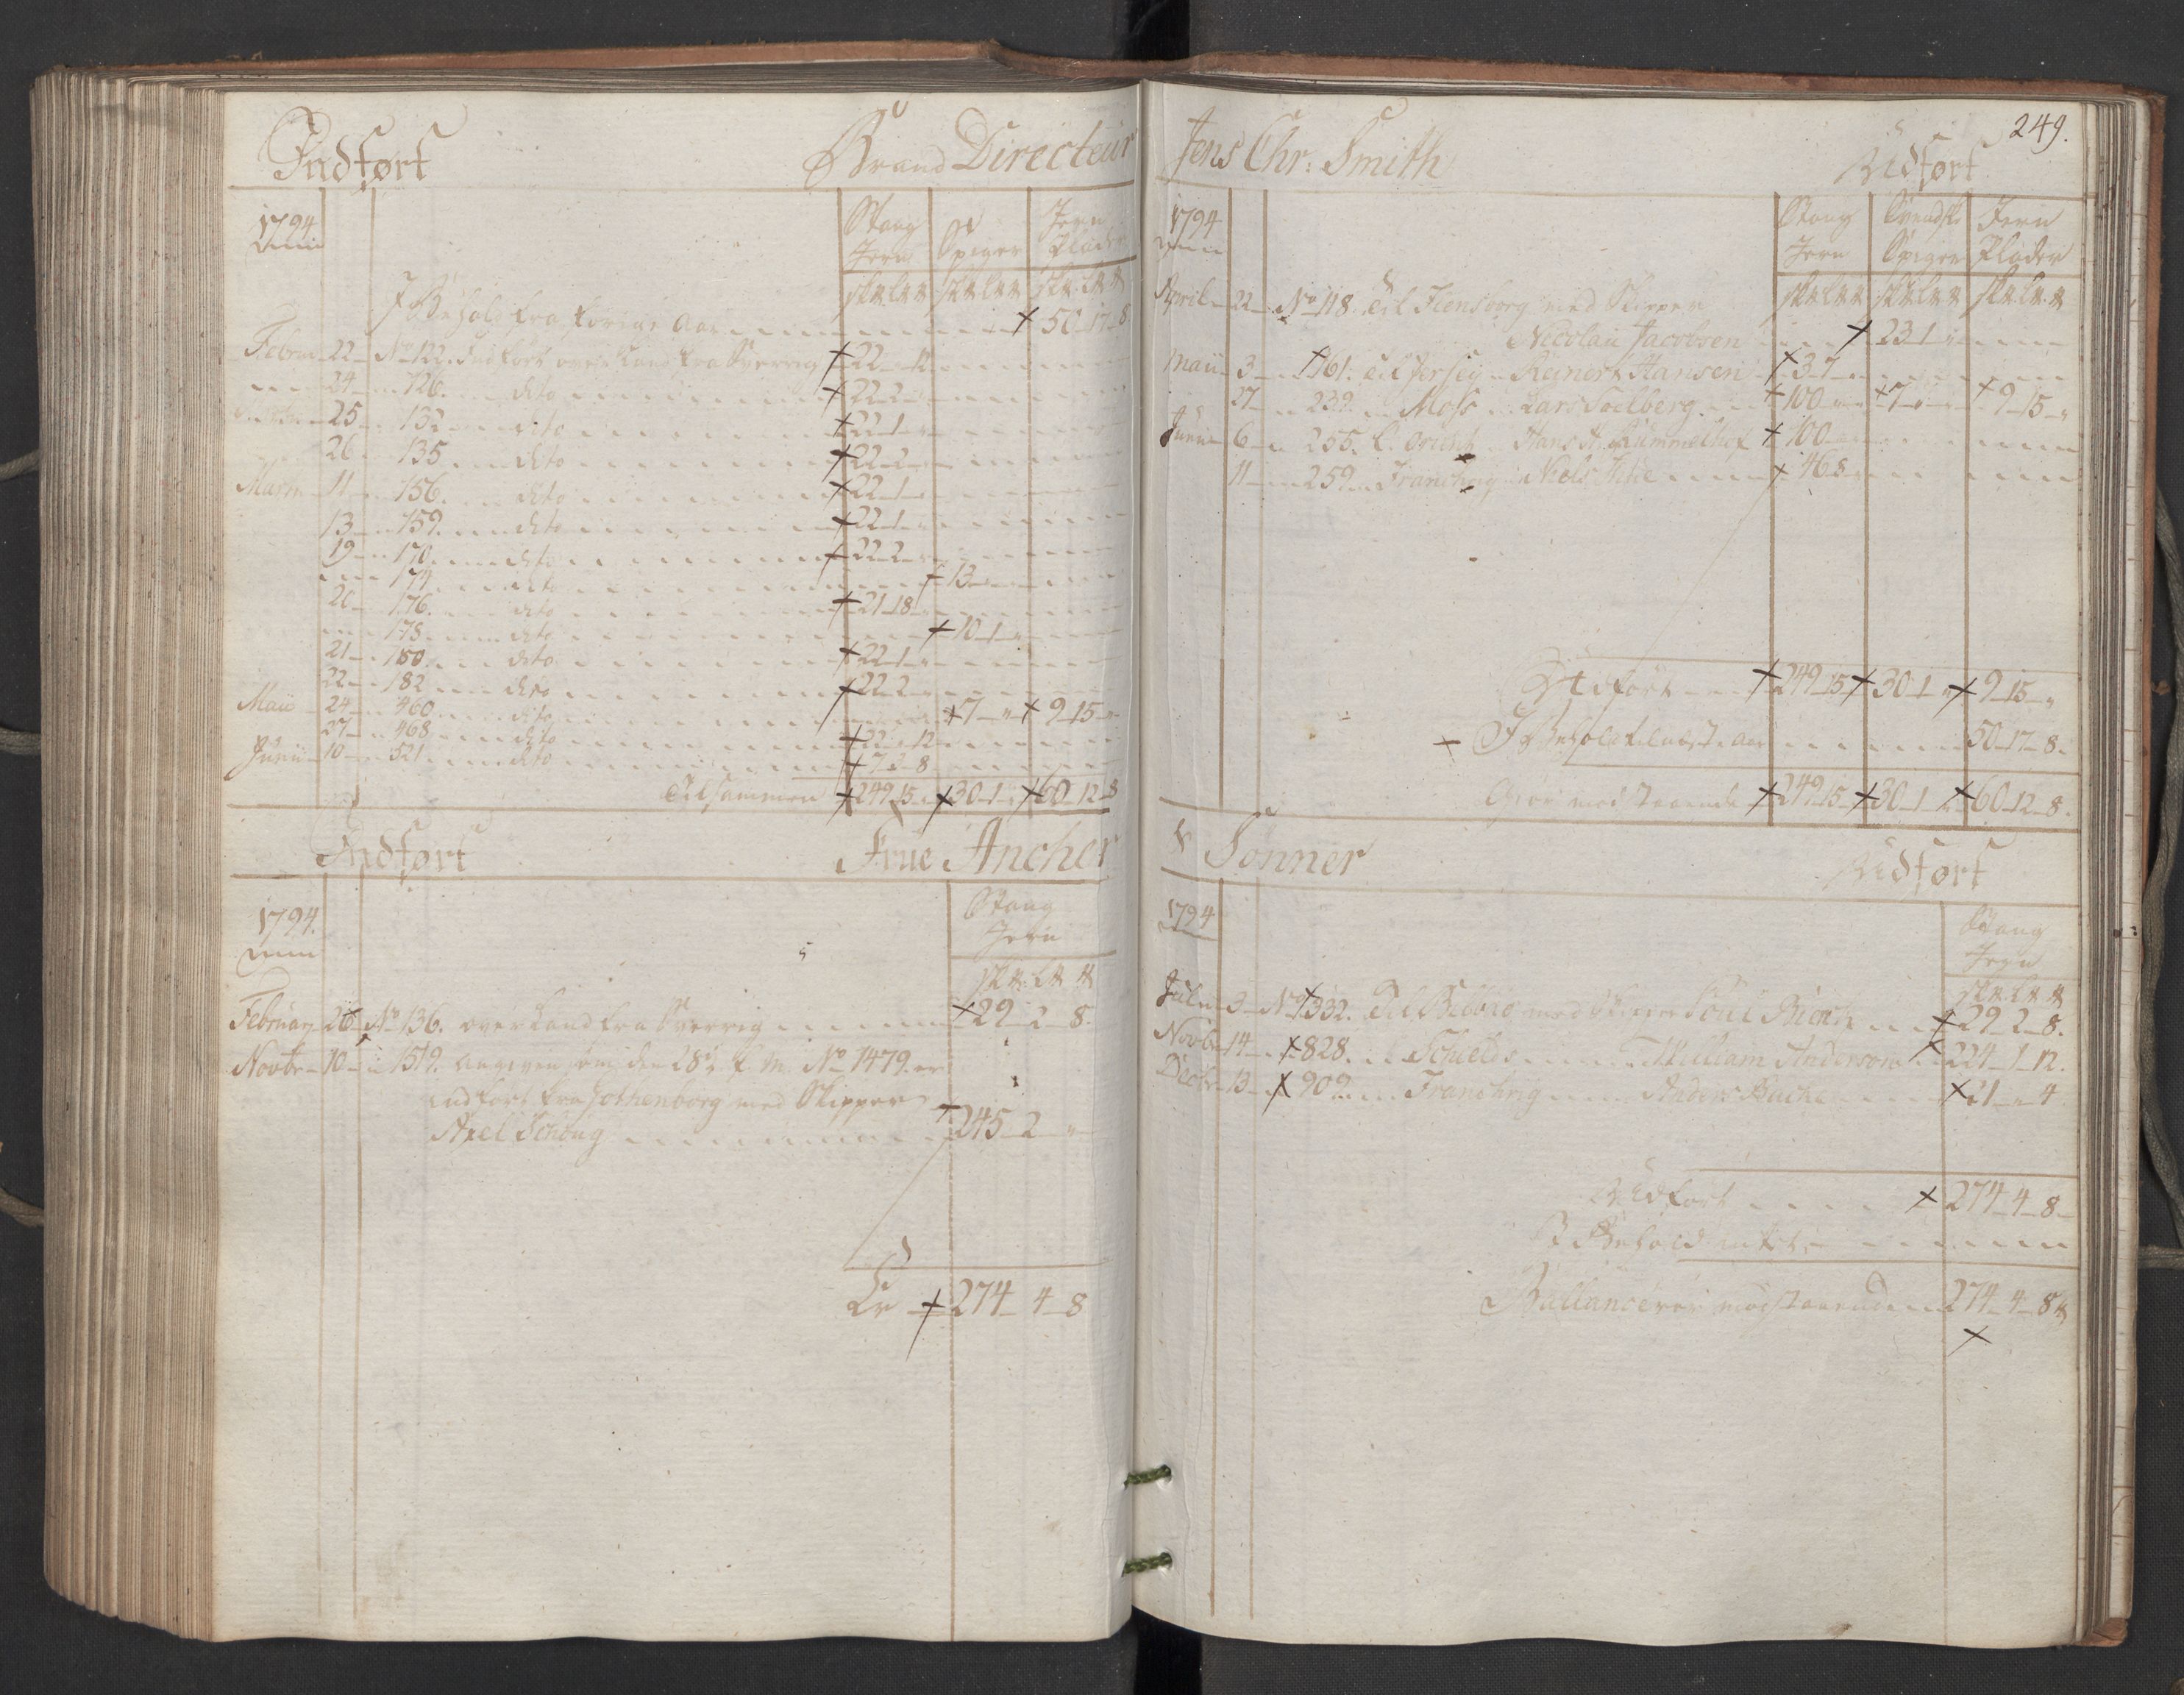 Indført Brand Directeur
1794
Stang Jern Spiger Jern Plader
I Behold fra forrige Aar 50 17 8
Februar 22 No 122. Indført over Land fra Sverrig 22 " 12
24 126. dito 22 2 "
25 132 dito 22 1 "
26 135 dito 22 2 "
Martii 11 156. dito 22 1 "
13 159. dito 22 1 "
19 170 dito 22 2 "
174 dito 13 " "
20 176. dito 21 18 "
178 dito 10 1 "
21 180 dito 22 1 "
22 182 dito 22 2 "
Maii 24 460 dito 7 " " 9 15 "
27 468 dito 22 " 12
Junii 10 521 dito 8
Tilsammen 249 15 " 30 1 " 60 12 8
Indført Frue Ancher
1794.
Stang
Jern
Februar 26 No 136. over Land fra Sverrig 29 2 8
Novbr 10 1519. angiven som den 28de f. M. No 1479. er
indført fra Gothenborg med Skipper
Axel Schoug 245 2 "
Er 274 4 8
249.
Jens Chr: Smith Udført
1794
Stang Jern Svendsk Spiger Jern Plader
April 22 No 118. til Flensborg med Skipper
Nicolaii Jacobsen 23 1 "
Maii 3 161. til Jersey Reinert Hansen 3 7 "
27 239. Moss Lars Soelberg 100 " " 7 " " 9 15 "
Junii 6 255. L. Orient Hans H. Rummelhof 100
11 259 Franchrig Niels 46 8 "
Udført 249 15 30 1 " 9 15 "
I Behold til næste Aar 50 17 8.
Giør modstaaende 249 15 30 1 " 60 12 8.
& Sönner Udført
1794
Stang
Jern
Julii 3 No 332. til Bilbao med Skipper Böie Bierch 29 2 8.
Novbr 14 828. Schields Willam Anderson 224 1 12.
Decbr 13 909. Franchrig Anders Bache 21 " 4
Udført 274 4 8
I Behold intet
Ballancerer modstaaende 274 4 8